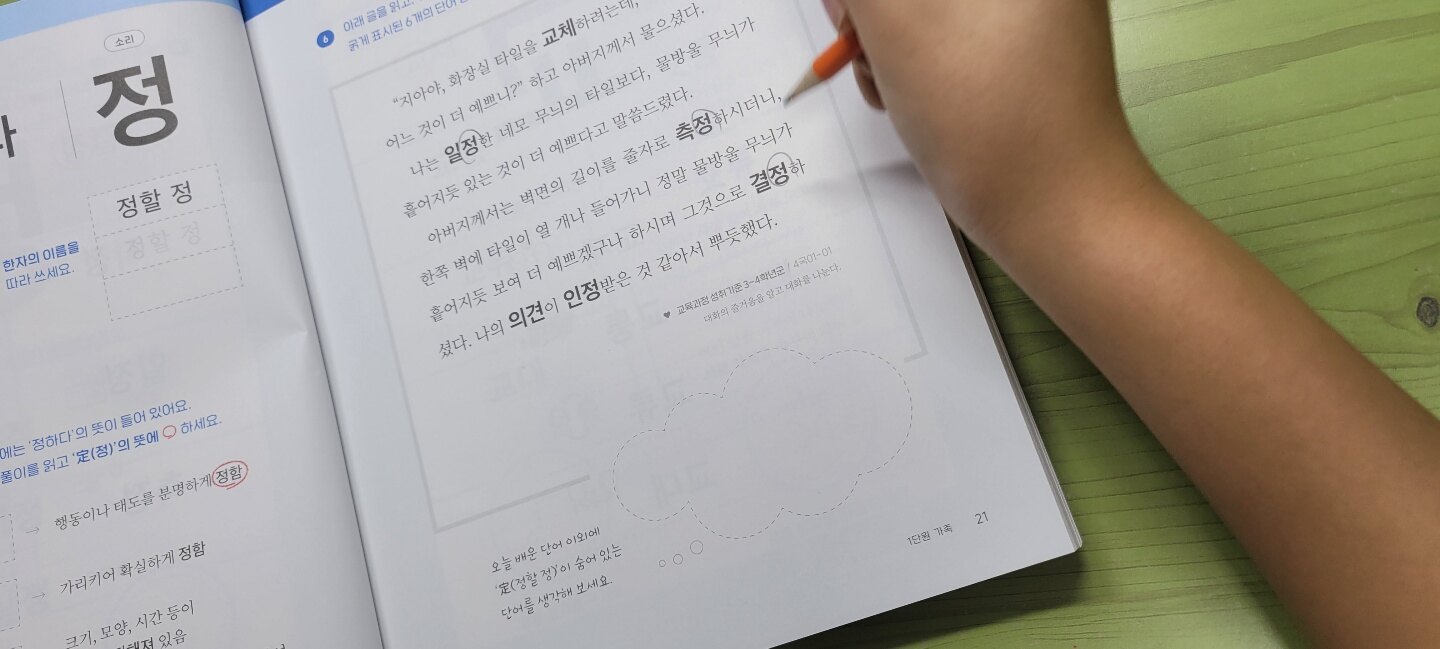 소리
정
정할 정
정할 정
한자의 이름을
따라 쓰세요.
에는 '정하다'의 뜻이 들어 있어요.
풀이를 읽고 '定(정)'의 뜻에 ○ 하세요.
→ 행동이나 태도를 분명하게 정함
→ 가리키어 확실하게 정함
크기, 모양, 시간 등이
있음
6 아래 글을 읽고,
굵게 표시된 6개의 단어
"지아야, 화장실 타일을 교체하려는데,
어느 것이 더 예쁘니?" 하고 아버지께서 물으셨다.
나는 일정한 네모 무늬의 타일보다, 물방울 무늬가
흩어지듯 있는 것이 더 예쁘다고 말씀드렸다.
아버지께서는 벽면의 길이를 줄자로 측정하시더니,
한쪽 벽에 타일이 열 개나 들어가니 정말 물방울 무늬가
흩어지듯 보여 더 예쁘겠구나 하시며 그것으로 결정하
셨다. 나의 의견이 인정받은 것 같아서 뿌듯했다.
♥ 교육과정 성취기준 3~4학년군 / 4국01-01
대화의 즐거움을 알고 대화를 나눈다.
오늘 배운 단어 이외에
'定(정할 정)'이 숨어 있는
단어를 생각해 보세요.
1단원 가족 21